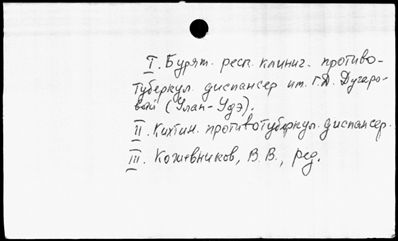 I. Бурят. респ. клинич. противо-
туберкул. диспансер им. Г.Д. Дугаро-
вой (Улан-Удэ).
II. Кихтин. противотуберкул. диспансер.
III. Кожевников, В.В., ред.